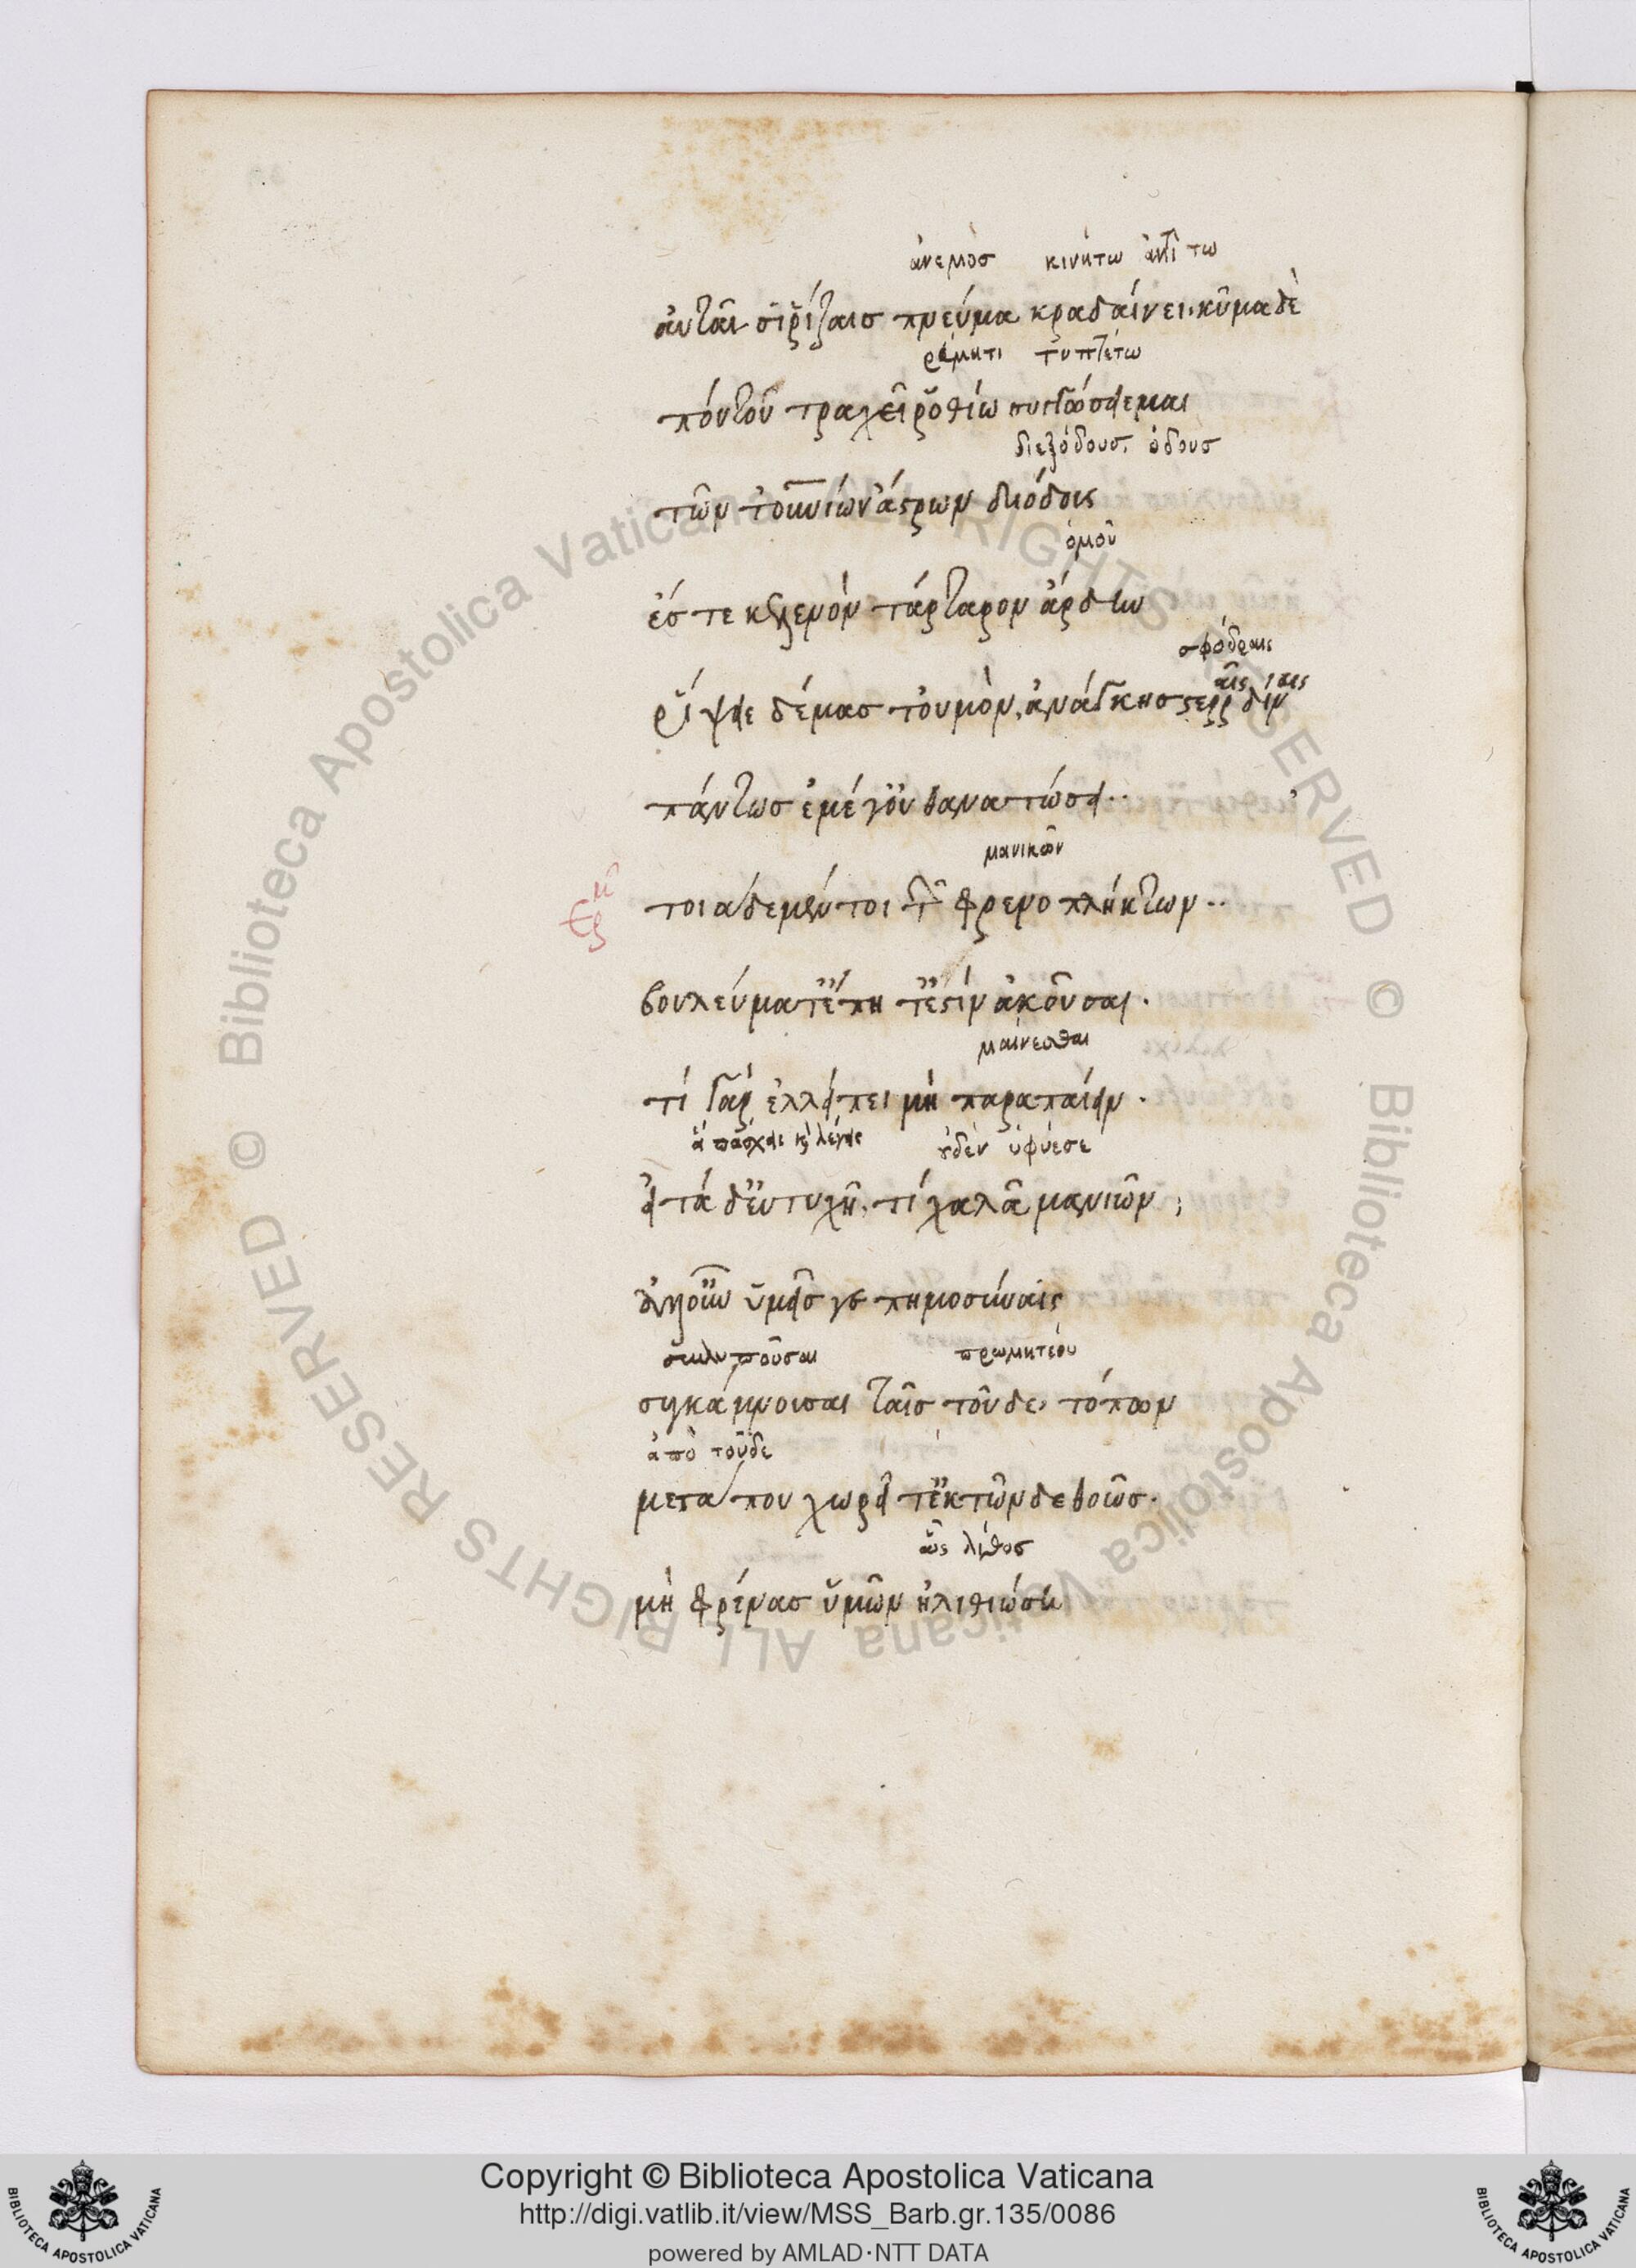 ἄνεμος κινήτω ἀντὶ τω
αὐταῖς ῥίζαις πνεῦμα κραδαίνει. κῦμα δὲ
τυπτέτω
πόντου τραχεῖ ῥοθίω συγχώσειε μαι
διεξόδους. ὁδοὺς
τῶν τ' οὐρανίων ἄστρων διόδοις
ὁμοῦ
ἐς τε κελαινὸν τάρταρον ἄρδην
σφόδραις
ῥίψειε δέμας τοὐμὸν, ἀνάγκης στερραῖς δίναις
πάντως ἐμέ γ' οὐ θανατώσει..
μανικῶν
ἑρμ τοιάδε μέντοι τῶν φρενοπλήκτων..
βουλεύματ' ἔπη τ' ἔστιν ἀκοῦσαι.
μαίνεσθαι
τί γὰρ ἐλλείπει μὴ παραπαίειν.
ἃ πάσχει καὶ λέγει οὐδὲν ὑφίεσε
εἰ τά δ' εὐτυχῆ. τί χαλᾶ μανιῶν;
ἀλλ' οὖν ὑμεῖς γε πημοσύναις
συλλυποῦσαι προμητέου
συγκάμνουσαι ταῖς τοῦδε, τόπων
ἀπὸ τοῦδε
μετά που χωρεῖτ' ἐκ τῶνδε θοῶς.
ὡς λίθος
μὴ φρένας ὑμῶν ἠλιθιώση
Copyright © Biblioteca Apostolica Vaticana
http://digi.vatlib.it/view/MSS_Barb.gr.135/0086
powered by AMLAD·NTT DATA
BIBLIOTECA APOSTOLICA VATICANA
BIBLIOTECA APOSTOLICA VATICANA
© Biblioteca Apostolica Vaticana ALL RIGHTS RESERVED
© Biblioteca Apostolica Vaticana ALL RIGHTS RESERVED